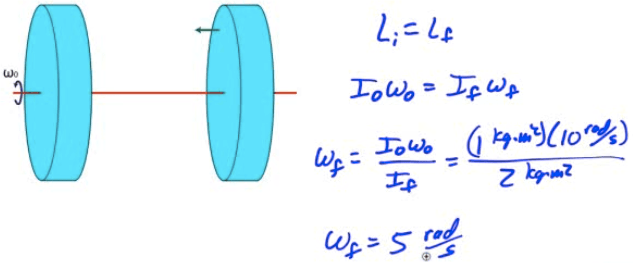 ω₀
Lᵢ = L_f
I₀ω₀ = I_f ω_f
ω_f = I₀ω₀ / I_f = (1 kg·m²)(10 rad/s) / 2 kg·m²
ω_f = 5 rad/s